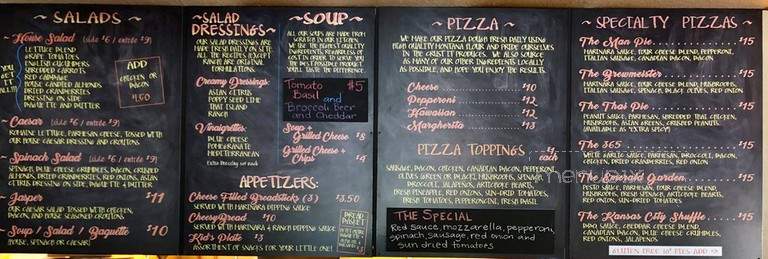 ~ SALADS ~
~ House Salad (side $6 / entrée $9)
YOU GET IT ALL!!!
LETTUCE BLEND
GRAPE TOMATOES
ENGLISH CUCUMBERS
SHREDDED CARROTS
RED CABBAGE
SLICED CANDIED ALMONDS
DRIED CRANBERRIES
DRESSING ON SIDE
BAGUETTE AND BUTTER
ADD
CHICKEN OR
BACON
4.50
~ Caesar (side $6 / entrée $9)
ROMAINE LETTUCE, PARMESAN CHEESE, TOSSED WITH
OUR HOUSE CAESAR DRESSING AND CROUTONS.
~ Spinach Salad (side $6 / entrée $9)
SPINACH, BLUE CHEESE CRUMBLES, BACON, CRUSHED
ALMONDS, DRIED CRANBERRIES, RED ONIONS, ASIAN
CITRUS DRESSING ON SIDE, BAGUETTE & BUTTER
~ Jasper $11
OUR CAESAR SALAD TOSSED WITH CHICKEN,
BACON, AND HOUSE SEASONED CROUTONS.
~ Soup / Salad / Baguette $10
HOUSE, SPINACH OR CAESAR!
~SALAD
DRESSINGS~
OUR SALAD DRESSINGS ARE
MADE FRESH DAILY ON SITE.
ALL THE RECIPES (EXCEPT
RANCH) ARE ORIGINAL
FORMULATIONS.
Creamy Dressings:
ASIAN CITRUS
POPPY SEED LIME
THAI ISLAND
CAESAR
RANCH
Vinaigrettes:
BLUE CHEESE
POMEGRANATE
MEDITERRANEAN
Extra Dressing
~ SOUP ~
ALL OUR SOUPS ARE MADE FROM
SCRATCH IN OUR KITCHEN.
WE USE THE HIGHEST QUALITY
INGREDIENTS, REGARDLESS OF
COST IN ORDER TO SERVE YOU
THE BEST PRODUCT POSSIBLE.
YOU'LL TASTE THE DIFFERENCE.
Tomato $5
Basil
and
Broccoli Beer
and Cheddar
Soup +
Grilled Cheese $8
Grilled Cheese +
Chips $4
APPETIZERS:
Cheese Filled Breadsticks (3) $3.50
SERVED WITH MARINARA DIPPING SAUCE
CheesyBread $10
SERVED WITH MARINARA & RANCH DIPPING SAUCE
Kid's Plate $3
ASSORTMENT OF SNACKS FOR YOUR LITTLE ONE!
~ PIZZA ~
WE MAKE OUR PIZZA DOUGH FRESH DAILY USING
HIGH QUALITY MONTANA FLOUR AND PRIDE OURSELVES
IN THE CRUST IT PRODUCES. WE ALSO SOURCE
AS MANY OF OUR OTHER INGREDIENTS LOCALLY
AS POSSIBLE, AND HOPE YOU ENJOY THE RESULTS.
Cheese $10
Pepperoni $12
Hawaiian $12
Margherita $13
PIZZA TOPPINGS $1 each
SAUSAGE, BACON, CHICKEN, CANADIAN BACON, PEPPERONI,
OLIVES (GREEN OR BLACK), MUSHROOMS, SPINACH,
BROCCOLI, JALAPENOS, ARTICHOKE HEARTS,
FRESH PINEAPPLE, RED ONIONS, SUN-DRIED TOMATOES,
FRESH TOMATOES, PEPPERONCINI, FRESH BASIL
THE SPECIAL
Red sauce, mozzarella, pepperoni,
spinach, sausage, red onion and
sun dried tomatoes
~ SPECIALTY PIZZAS ~
The Man Pie $15
MARINARA SAUCE, FOUR CHEESE BLEND, PEPPERONI,
ITALIAN SAUSAGE, CANADIAN BACON, BACON
The Brewmeister $15
MARINARA SAUCE, FOUR CHEESE BLEND, MUSHROOMS,
ITALIAN SAUSAGE, SPINACH, BLACK OLIVES, RED ONION
The Thai Pie $15
PEANUT SAUCE, PARMESAN, SHREDDED THAI CHICKEN,
MUSHROOMS, ASIAN GREENS, CRUSHED PEANUTS.
(AVAILABLE AS "EXTRA SPICY")
The 365 $15
WHITE GARLIC SAUCE, PARMESAN, BROCCOLI, BACON,
CHICKEN, DRIED CRANBERRIES, RED ONION
The Emerald Garden $15
PESTO SAUCE, PARMESAN, FOUR CHEESE BLEND,
MUSHROOMS, FRESH SPINACH, ARTICHOKE HEARTS,
RED ONION, SUN-DRIED TOMATOES
The Kansas City Shuffle $15
BBQ SAUCE, CHEDDAR CHEESE BLEND,
CANADIAN BACON, BLUE CHEESE CRUMBLES,
RED ONIONS, JALAPENOS
GLUTEN FREE 10" PIES ADD $2